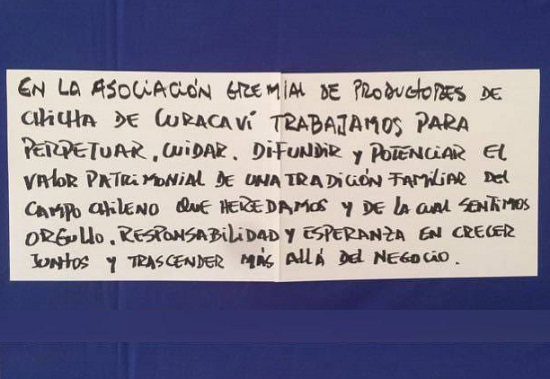 EN LA ASOCIACIÓN GREMIAL DE PRODUCTORES DE
CHICHA DE CURACAVÍ TRABAJAMOS PARA
PERPETUAR, CUIDAR, DIFUNDIR Y POTENCIAR EL
VALOR PATRIMONIAL DE UNA TRADICIÓN FAMILIAR DEL
CAMPO CHILENO QUE HEREDAMOS Y DE LA CUAL SENTIMOS
ORGULLO, RESPONSABILIDAD Y ESPERANZA EN CRECER
JUNTOS Y TRASCENDER MÁS ALLÁ DEL NEGOCIO.